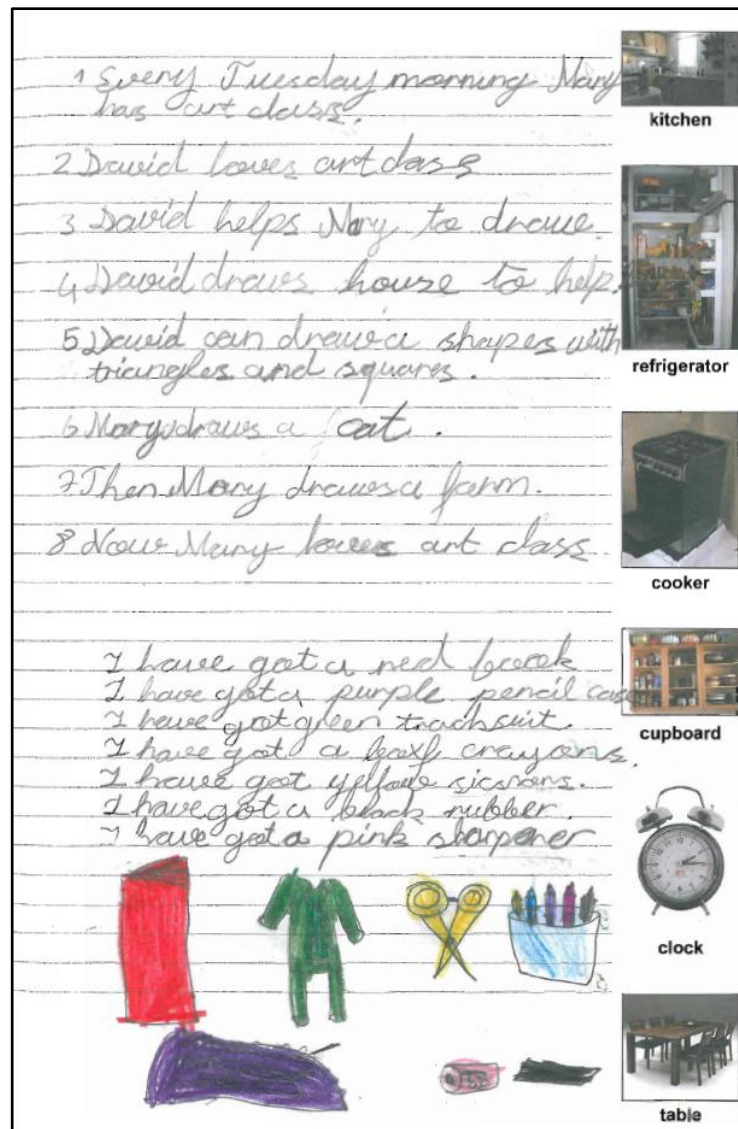 1 Every Tuesday morning Mary
has art class.
2 David loves art class
3 David helps Mary to draw.
4 David draws house to help.
5 David can draw a shapes with
triangles and squares.
6 Marys draws a cat.
7 Then Mary draws a farm.
8 Now Mary loves art class
I have got a red book
I have got a purple pencil case
I have got green tracksuit.
I have got a boxf crayons.
I have got yellow sicsrors.
I have got a black rubber.
I have got a pink sharpener
kitchen
refrigerator
cooker
cupboard
clock
table